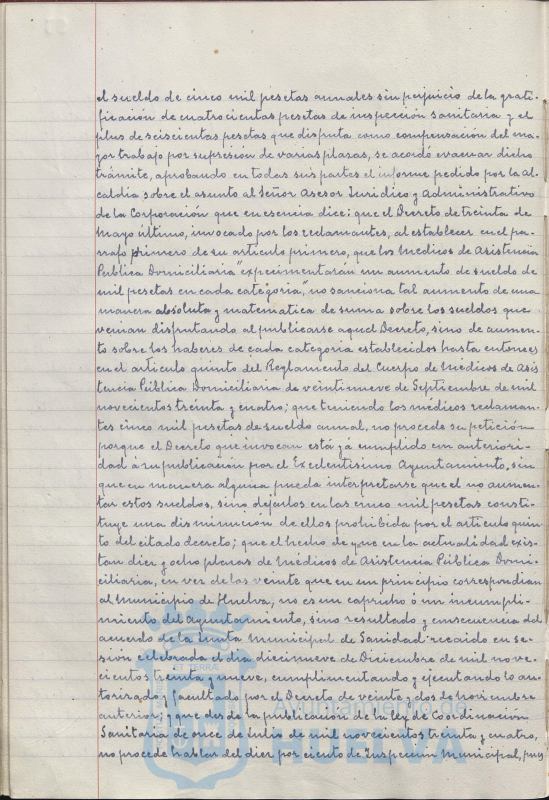 el sueldo de cinco mil pesetas anuales sin perjuicio de la grati-
ficación de cuatrocientas pesetas de inspección sanitaria y el
plus de seiscientas pesetas que disfruta como compensación del ma-
yor trabajo por supresión de varias plazas, se acordó evacuar dicho
trámite, aprobando en todas sus partes el informe pedido por la Al-
caldía sobre el asunto al Señor Asesor Jurídico y Administrativo
de la Corporación que en esencia dice: que el Decreto de treinta de
Mayo último, invocado por los reclamantes, al establecer en el pá-
rrafo primero de su artículo primero, que los Médicos de Asistencia
Pública Domiciliaria "experimentarán un aumento de sueldo de
mil pesetas en cada categoría," no sanciona tal aumento de una
manera absoluta y matemática de suma sobre los sueldos que
venían disfrutando al publicarse aquel Decreto, sino de aumen-
to sobre los haberes de cada categoría establecidos hasta entonces
en el artículo quinto del Reglamento del Cuerpo de Médicos de Asis-
tencia Pública Domiciliaria de veintinueve de Septiembre de mil
novecientos treinta y cuatro; que teniendo los médicos reclaman-
tes cinco mil pesetas de sueldo anual, no procede su petición
porque el Decreto que invocan está yá cumplido con anteriori-
dad á su publicación por el Excelentísimo Ayuntamiento, sin
que en manera alguna pueda interpretarse que el no aumen-
tar estos sueldos, sino dejarlos en las cinco mil pesetas consti-
tuye una disminución de ellos prohibida por el artículo quin-
to del citado decreto; que el hecho de que en la actualidad exis-
tan diez y ocho plazas de médicos de Asistencia Pública Domi-
ciliaria, en vez de las veinte que en un principio correspondían
al Municipio de Huelva, no es un capricho ó un incumpli-
miento del Ayuntamiento, sino resultado y consecuencia del
acuerdo de la Junta Municipal de Sanidad recaido en se-
sión celebrada el día diecinueve de Diciembre de mil nove-
cientos treinta y nueve, cumplimentando y ejecutando lo au-
torizado y facultado por el Decreto de veinte y dos de noviembre
anterior; y que desde la publicación de la ley de Coordinación
Sanitaria de once de Julio de mil novecientos treinta y cuatro,
no procede hablar del diez por ciento de Inspección Municipal, pues
Ayuntamiento de
HUELVA